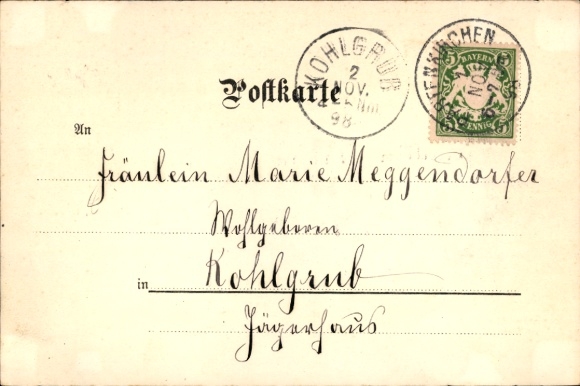 KOHLGRUB
2
NOV.
98
BAYERN
5 5
PFENNIG
5 5
Postkarte
An
Fräulein Marie Meggendorfer
Wohlgeboren
in Kohlgrub
Jägerhaus